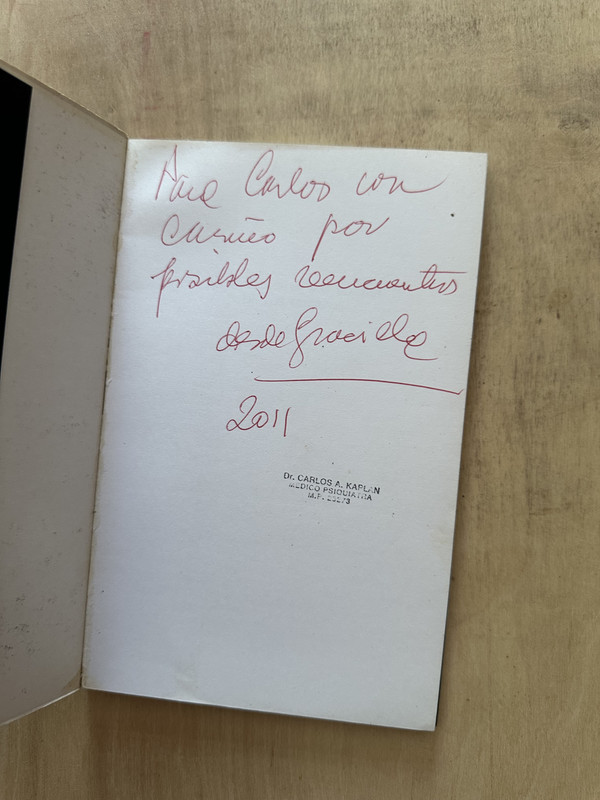 Para Carlos con
cariño por
posibles reencuentros
desde Graciela
2011
Dr. CARLOS A. KAPLAN
MEDICO PSIQUIATRA
M.P.